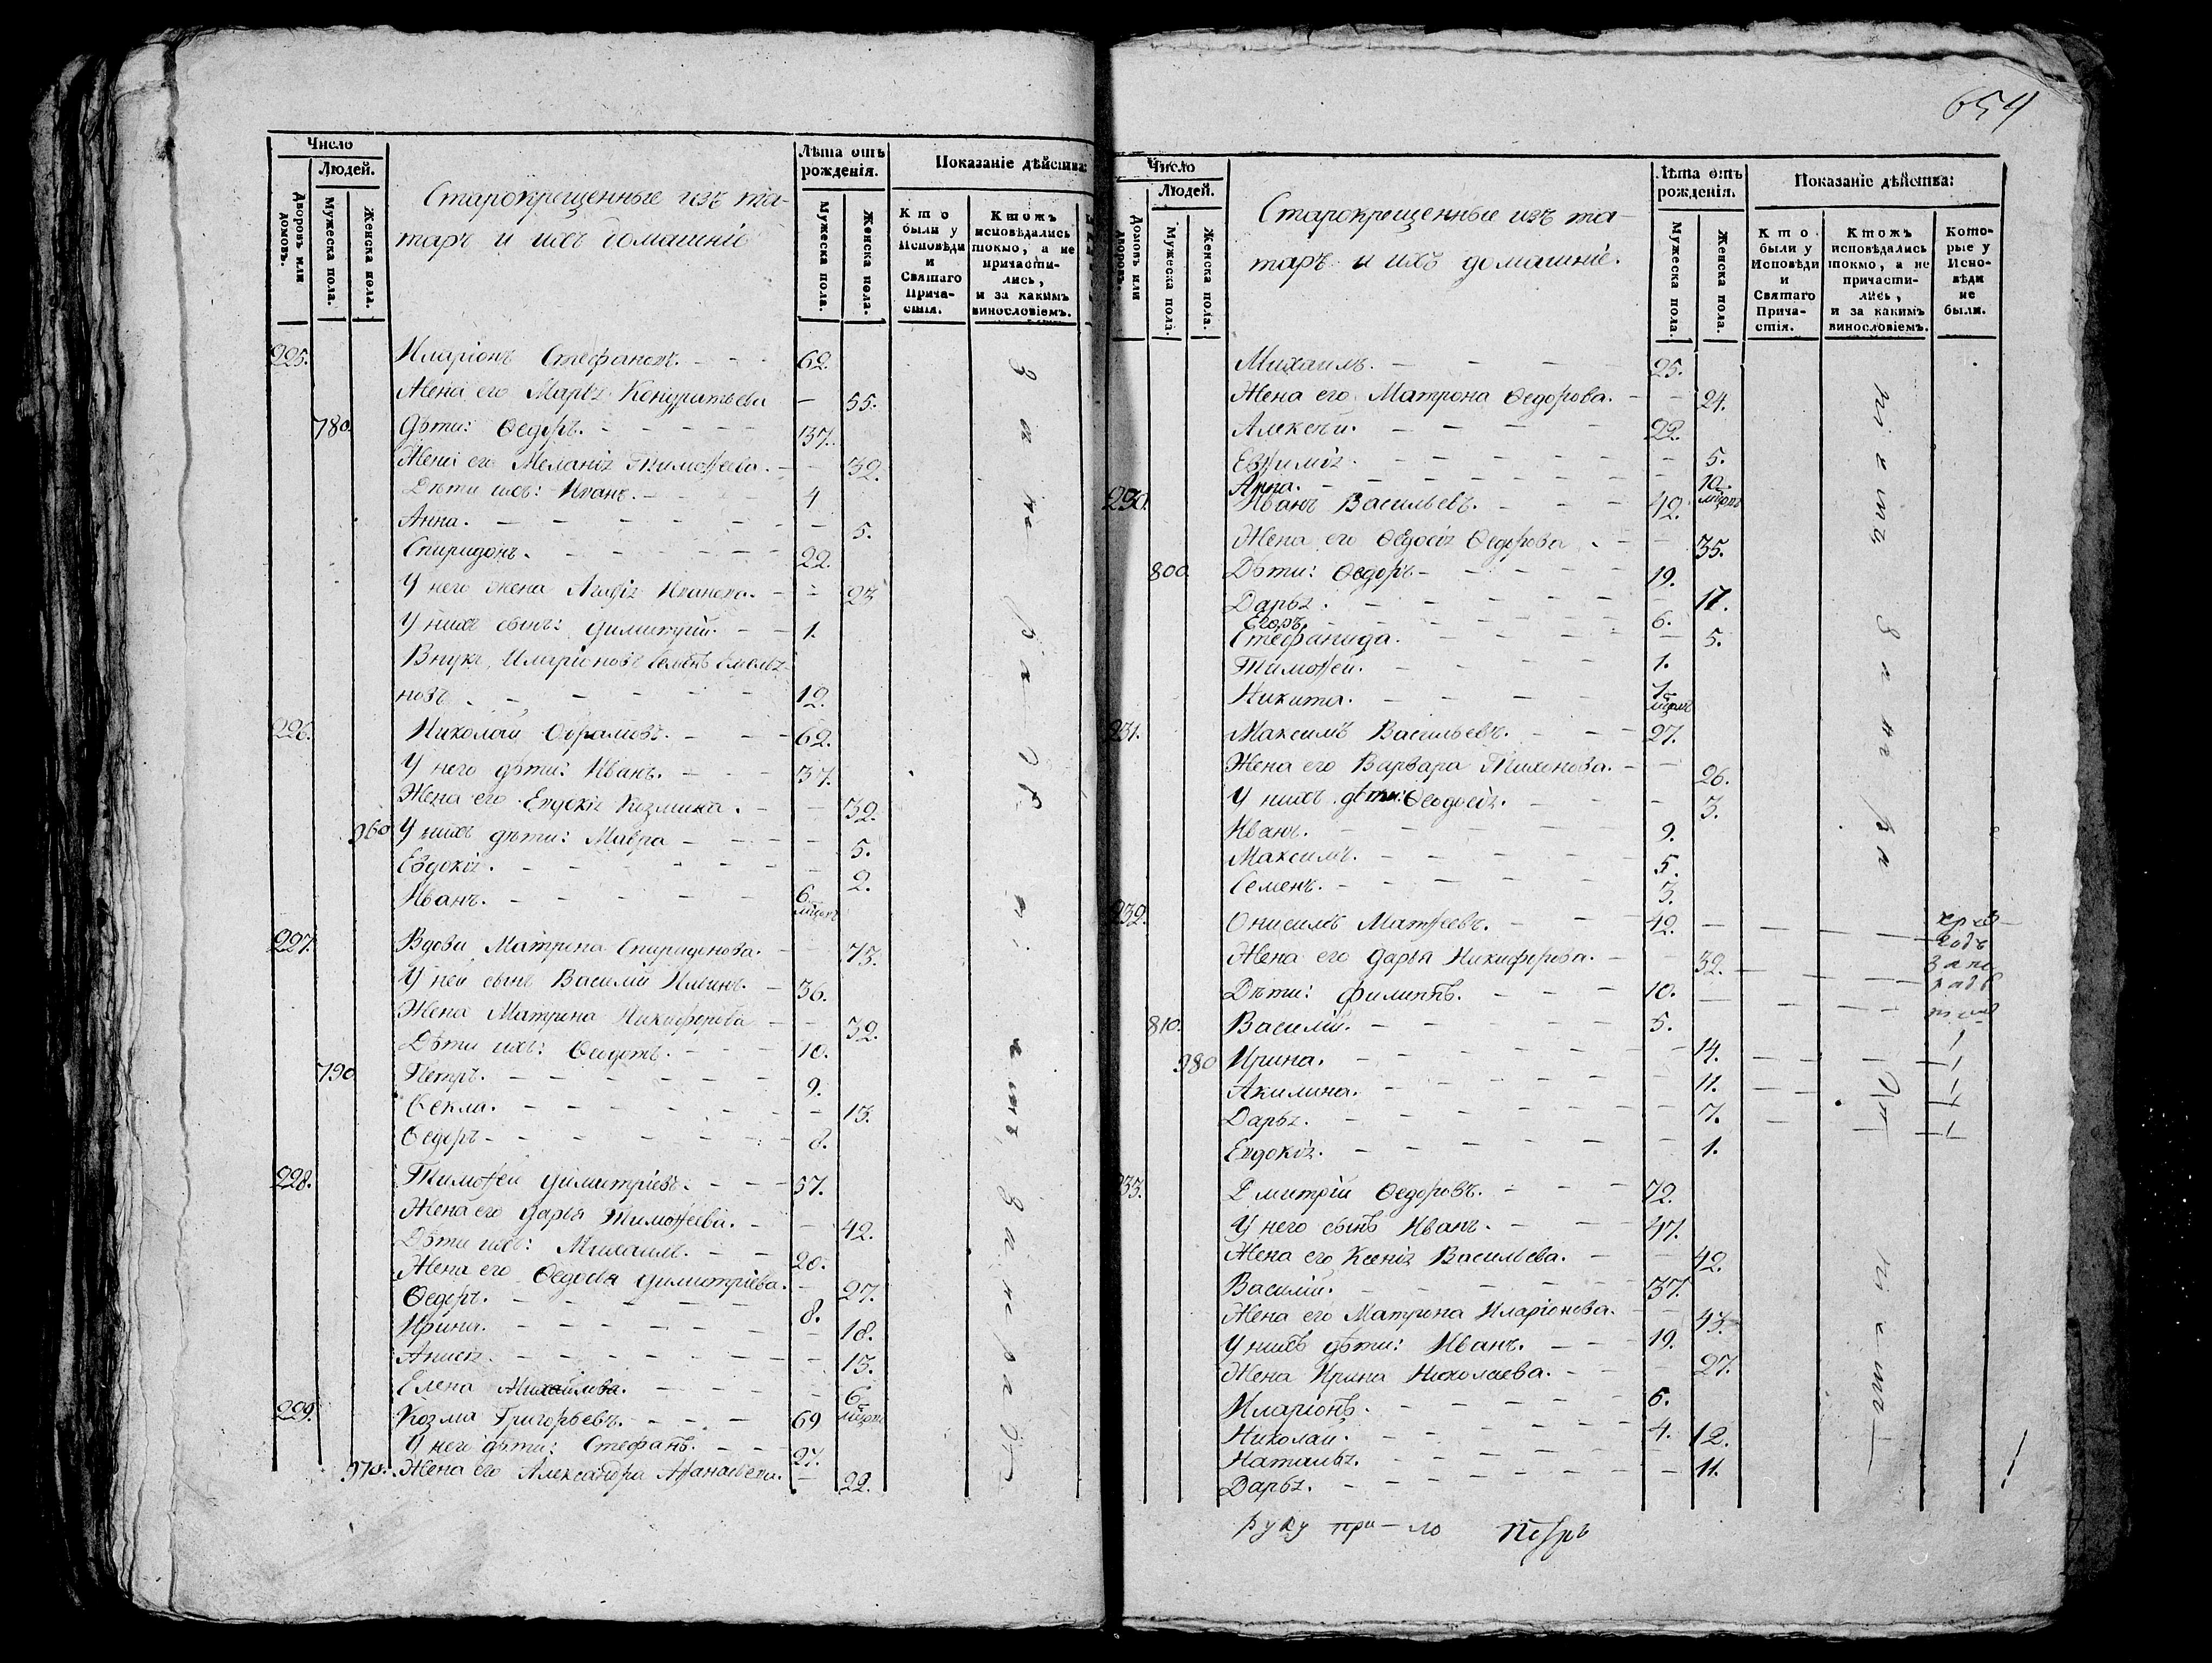 Число
Людей.
Дворовъ или домовъ.
Мужеска пола.
Женска пола.
Старокрещенные изъ та-
таръ и ихъ домашніе
Лѣта отъ рожденія.
Мужеска пола.
Женска пола.
Показаніе дѣйства:
Кто были у Исповѣди и Святаго Причастія.
Ктожъ исповѣдались токмо, а не причастились, и за какимъ винословіемъ.
225. Иларіонъ Стефановъ. 62.
Жена его Марья Кондратьева 55.
780 Дѣти: Ѳедоръ. 37.
Жена его Меланія Тимоѳеева. 32.
Дѣти ихъ: Иванъ. 4
Анна. 5.
Спиридонъ. 22.
У него жена Агафія Иванова. 23
У нихъ сынъ: Димитрій. 1.
Внукъ Иларіоновъ Семенъ Емелья-
новъ 12.
226. Николай Абрамовъ. 62.
У него дѣти: Иванъ. 37.
Жена его Евдокія Козмина. 32.
960 У нихъ дѣти: Мавра 5.
Евдокія. 2.
Иванъ. 6
227. Вдова Матрена Спиридонова. 73.
У ней сынъ Василій Ильинъ. 36.
Жена Матрена Никифорова 32.
Дѣти ихъ: Ѳедотъ. 10.
790 Петръ. 9.
Ѳекла. 13.
Ѳедоръ 8.
228. Тимоѳей Димитріевъ. 57.
Жена его Дарья Тимоѳеева. 42.
Дѣти ихъ: Михаилъ. 20.
Жена его Ѳедосья Димитріева. 27.
Ѳедоръ. 8.
Ирина. 18.
Анисья. 13.
Елена Михайлова. 6
229. Козма Григорьевъ. 69
У него дѣти: Стефанъ. 27.
970. Жена его Александра Аѳанасьева. 22.
654
Число
Людей.
Домовъ или дворовъ.
Мужеска пола.
Женска пола.
Старокрещенные изъ та-
таръ и ихъ домашніе.
Лѣта отъ рожденія.
Мужеска пола.
Женска пола.
Показаніе дѣйства:
Кто были у Исповѣди и Святаго Причастія.
Ктожъ исповѣдались токмо, а не причастились, и за какимъ винословіемъ.
Которые у Исповѣди не были.
Михаилъ. 25.
Жена его Матрона Ѳедорова. 24.
Алексѣи. 22.
Евѳимія. 5.
Анна. 10
230. Иванъ Васильевъ. 42.
Жена его Ѳедосія Ѳедорова 35.
800 Дѣти: Ѳедоръ 19.
Дарья. 17.
Егоръ. 6.
Стефанида. 5.
Тимоѳеи. 1.
Никита. 1
231. Максимъ Васильевъ. 27.
Жена его Варвара Тихонова. 26.
У нихъ дѣти: Ѳеодосія. 3.
Иванъ. 9.
Максимъ. 5.
Семенъ. 3.
232. Онисимъ Матѳеевъ. 42.
Жена его Дарья Никифорова. 32.
Дѣти: Филиппъ. 10.
810. Василій. 5.
980 Ирина. 14.
Акилина. 11.
Дарья. 7.
Евдокія. 1.
233. Дмитрій Ѳедоровъ. 72.
У него сынъ Иванъ. 47.
Жена его Ксенія Васильева. 42.
Василій. 37.
Жена его Матрена Иларіонова. 43.
У нихъ дѣти: Иванъ. 19.
Жена Ирина Николаева. 27.
Иларіонъ. 6.
Николай. 4.
Наталья. 12.
Дарья. 11.
руку при-ло